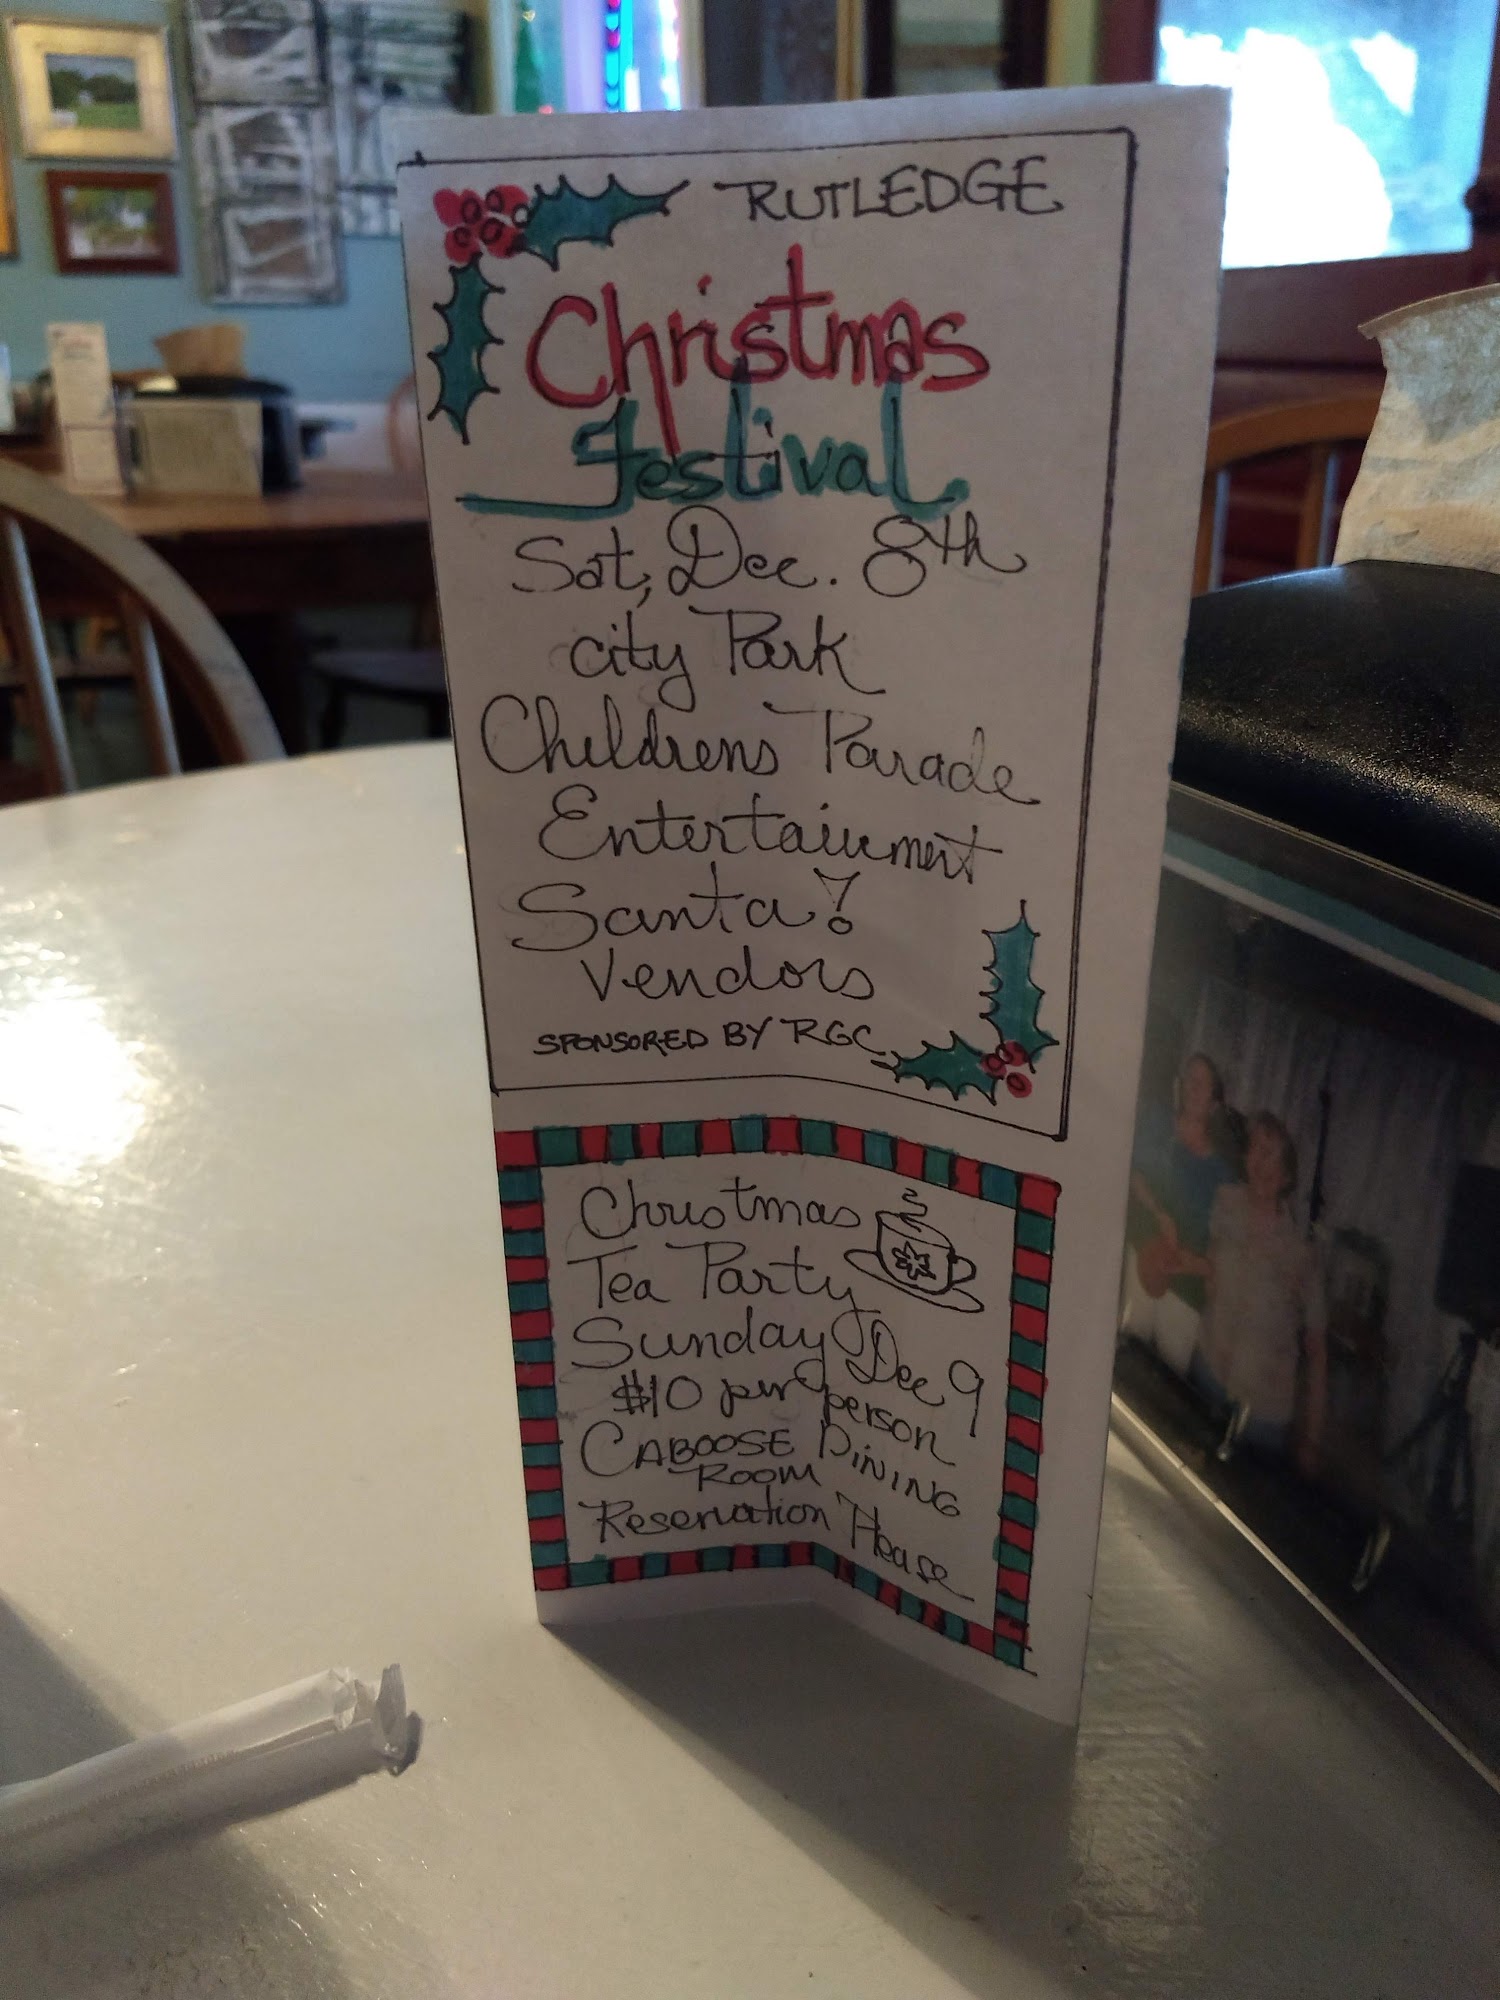 RUTLEDGE
Christmas
festival
Sat, Dec. 8th
city Park
Childrens Parade
Entertainment
Santa!
Vendors
SPONSORED BY RGC
Christmas
Tea Party
Sunday Dec 9
$10 per person
CABOOSE DINING
ROOM
Reservation Please